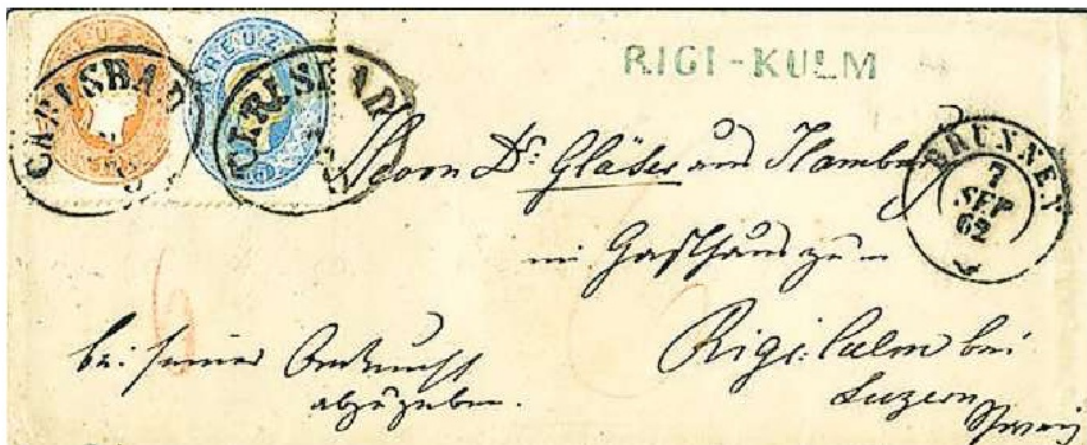 KREUZER
KREUZER
CARLSBAD
CARLSBAD
RIGI-KULM
BRUNNEN
7
SEP
62
Herrn Dr. Gläser aus Hamburg
im Gasthaus zum
Rigi-Culm bei
Luzern
Schweiz
bei seiner Ankunft
abzugeben.